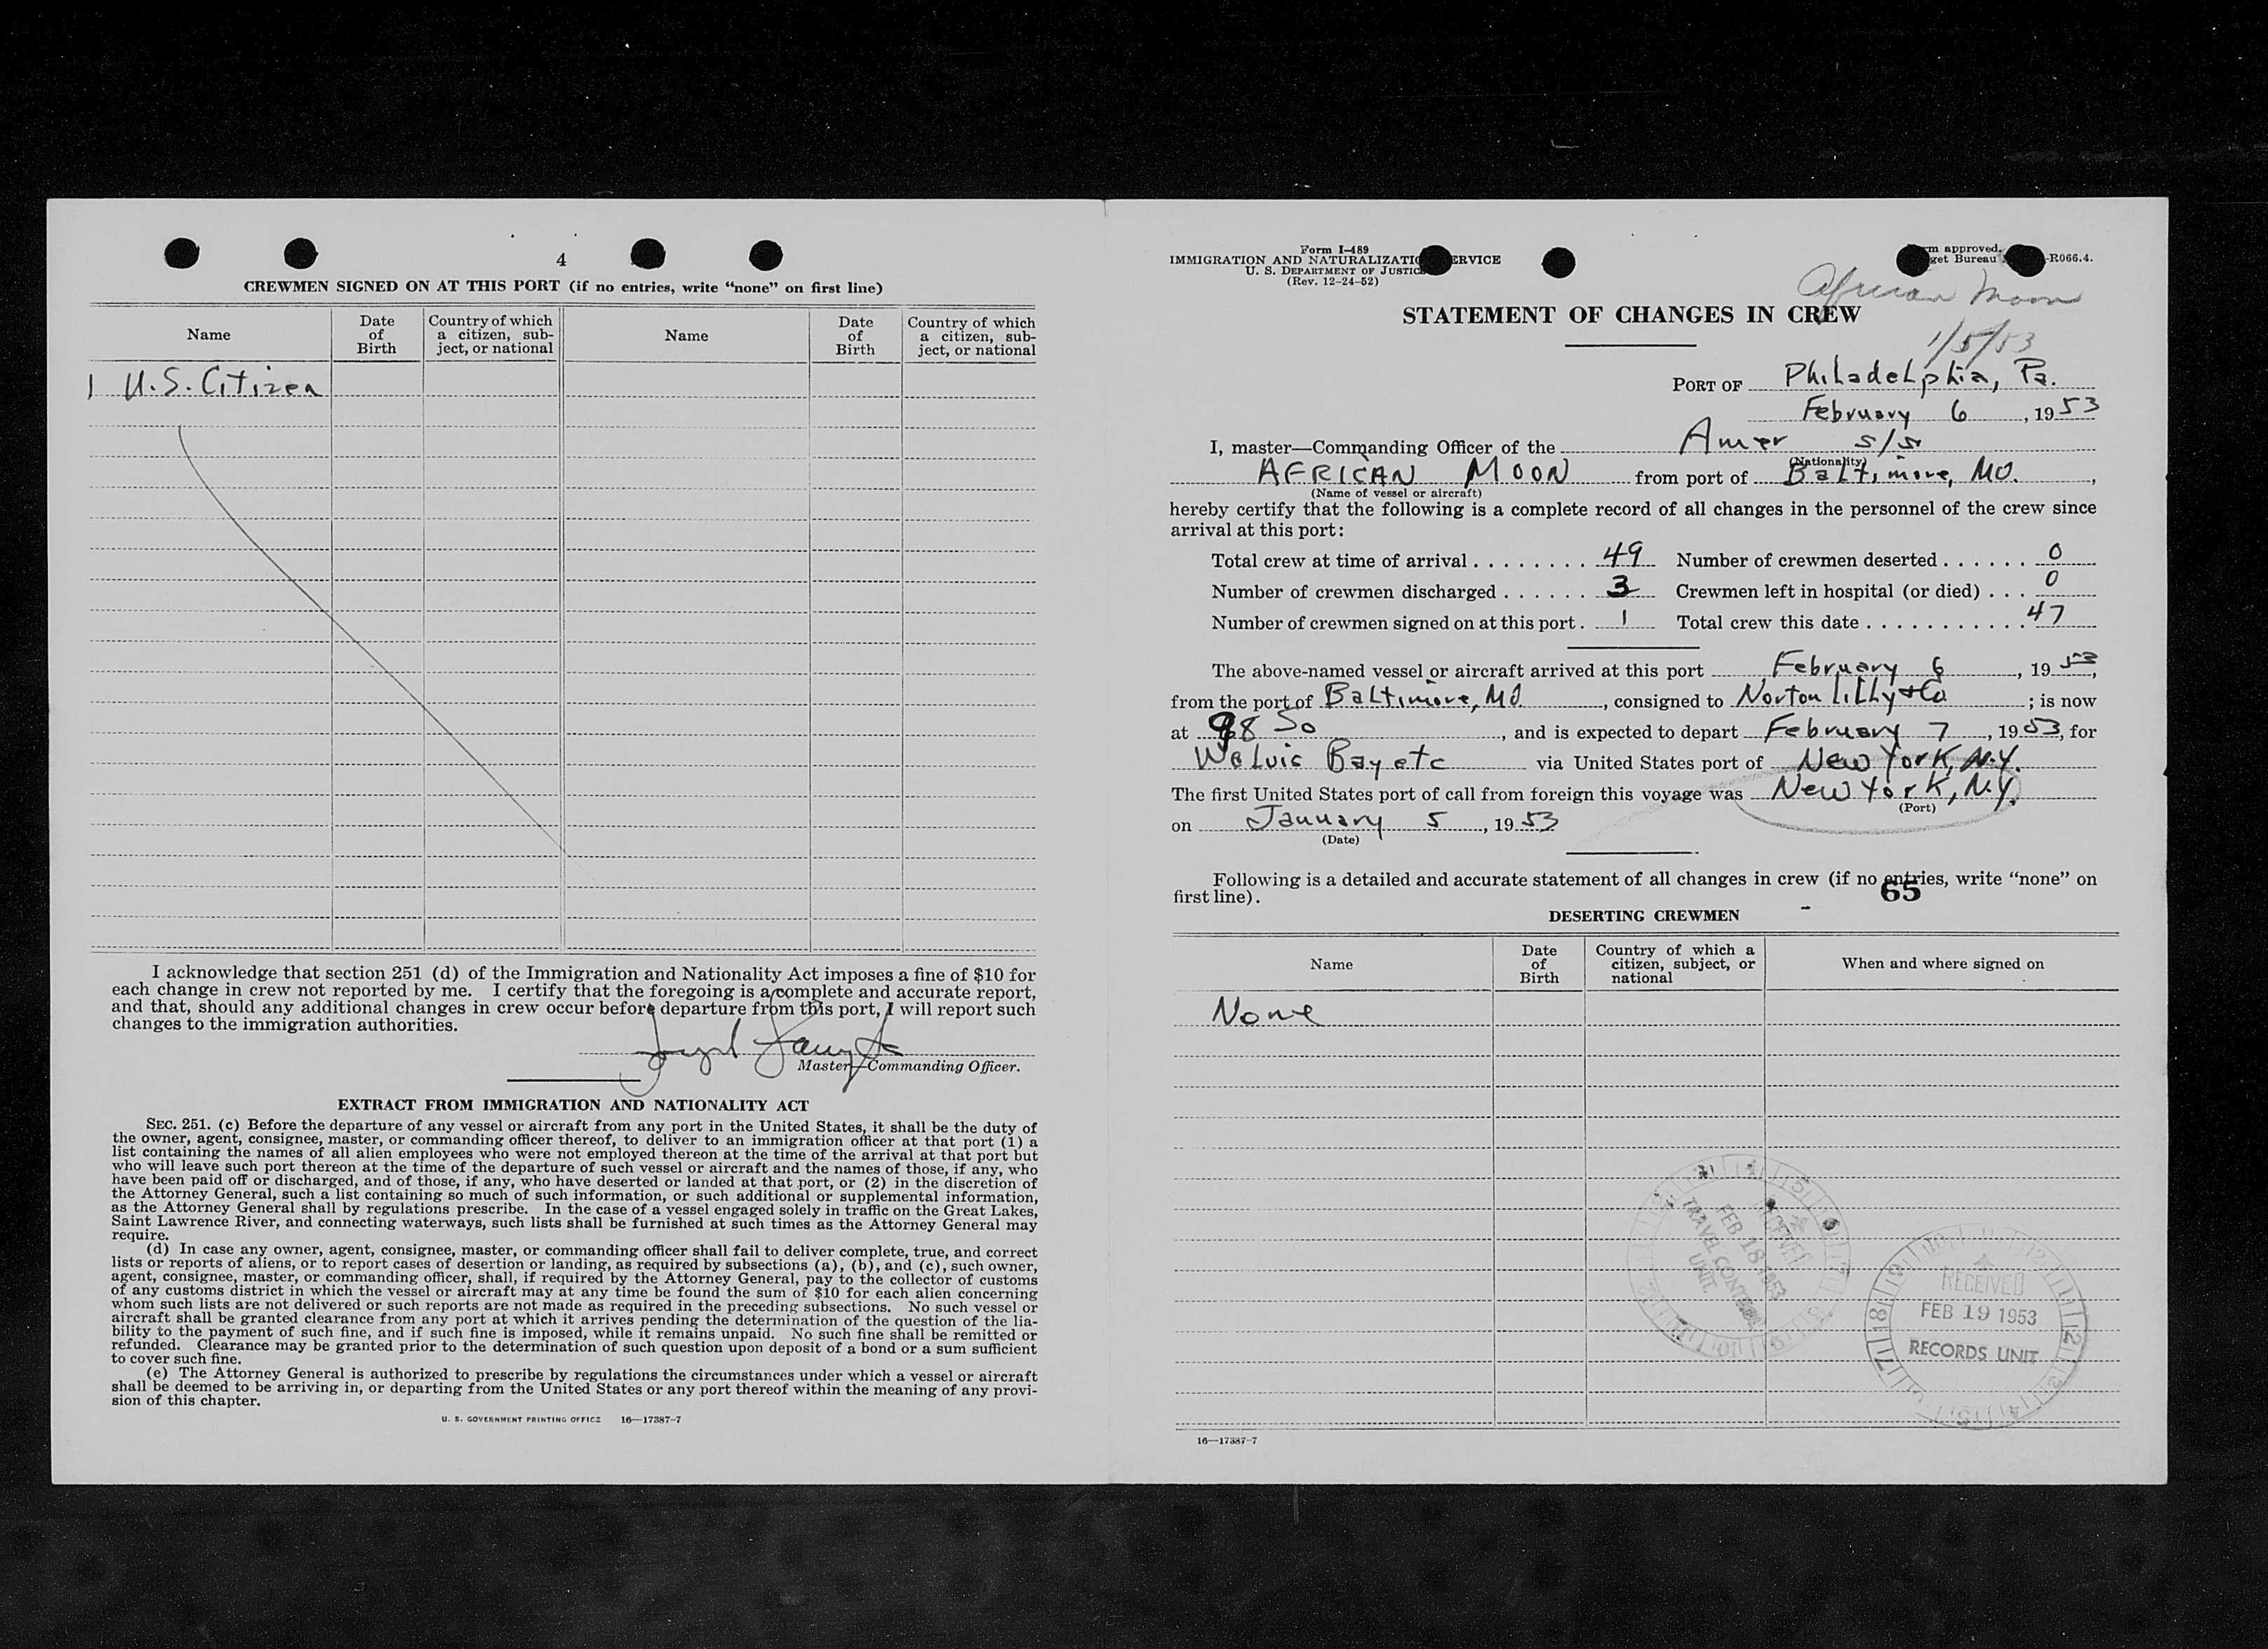 4
CREWMEN SIGNED ON AT THIS PORT (if no entries, write “none” on first line)
Name | Date of Birth | Country of which a citizen, subject, or national | Name | Date of Birth | Country of which a citizen, subject, or national
1 U.S. Citizen
I acknowledge that section 251 (d) of the Immigration and Nationality Act imposes a fine of $10 for
each change in crew not reported by me. I certify that the foregoing is a complete and accurate report,
and that, should any additional changes in crew occur before departure from this port, I will report such
changes to the immigration authorities.
Master—Commanding Officer.
EXTRACT FROM IMMIGRATION AND NATIONALITY ACT
SEC. 251. (c) Before the departure of any vessel or aircraft from any port in the United States, it shall be the duty of
the owner, agent, consignee, master, or commanding officer thereof, to deliver to an immigration officer at that port (1) a
list containing the names of all alien employees who were not employed thereon at the time of the arrival at that port but
who will leave such port thereon at the time of the departure of such vessel or aircraft and the names of those, if any, who
have been paid off or discharged, and of those, if any, who have deserted or landed at that port, or (2) in the discretion of
the Attorney General, such a list containing so much of such information, or such additional or supplemental information,
as the Attorney General shall by regulations prescribe. In the case of a vessel engaged solely in traffic on the Great Lakes,
Saint Lawrence River, and connecting waterways, such lists shall be furnished at such times as the Attorney General may
require.
(d) In case any owner, agent, consignee, master, or commanding officer shall fail to deliver complete, true, and correct
lists or reports of aliens, or to report cases of desertion or landing, as required by subsections (a), (b), and (c), such owner,
agent, consignee, master, or commanding officer, shall, if required by the Attorney General, pay to the collector of customs
of any customs district in which the vessel or aircraft may at any time be found the sum of $10 for each alien concerning
whom such lists are not delivered or such reports are not made as required in the preceding subsections. No such vessel or
aircraft shall be granted clearance from any port at which it arrives pending the determination of the question of the lia-
bility to the payment of such fine, and if such fine is imposed, while it remains unpaid. No such fine shall be remitted or
refunded. Clearance may be granted prior to the determination of such question upon deposit of a bond or a sum sufficient
to cover such fine.
(e) The Attorney General is authorized to prescribe by regulations the circumstances under which a vessel or aircraft
shall be deemed to be arriving in, or departing from the United States or any port thereof within the meaning of any provi-
sion of this chapter.
U. S. GOVERNMENT PRINTING OFFICE 16—17387-7
Form I-489
IMMIGRATION AND NATURALIZATION SERVICE
U. S. DEPARTMENT OF JUSTICE
(Rev. 12-24-52)
approved.
Bureau -R066.4.
African Moon
1/5/53
STATEMENT OF CHANGES IN CREW
PORT OF Philadelphia, Pa.
February 6, 1953
I, master—Commanding Officer of the Amer s/s
(Nationality)
AFRICAN MOON from port of Baltimore, Md.,
(Name of vessel or aircraft)
hereby certify that the following is a complete record of all changes in the personnel of the crew since
arrival at this port:
Total crew at time of arrival . . . . . . . . 49 Number of crewmen deserted . . . . . . 0
Number of crewmen discharged . . . . . . 3 Crewmen left in hospital (or died) . . . 0
Number of crewmen signed on at this port . 1 Total crew this date . . . . . . . . . . . 47
The above-named vessel or aircraft arrived at this port February 6, 1953,
from the port of Baltimore, Md, consigned to Norton Lilly & Co; is now
at 98 So, and is expected to depart February 7, 1953, for
Walvic Bay etc via United States port of New York, N.Y.
The first United States port of call from foreign this voyage was New York, N.Y.
(Port)
on January 5, 1953
(Date)
Following is a detailed and accurate statement of all changes in crew (if no entries, write “none” on
first line).
65
DESERTING CREWMEN
Name | Date of Birth | Country of which a citizen, subject, or national | When and where signed on
None
RECEIVED
FEB 18 1953
TRAVEL CONTROL
UNIT
RECEIVED
FEB 19 1953
RECORDS UNIT
16—17387-7